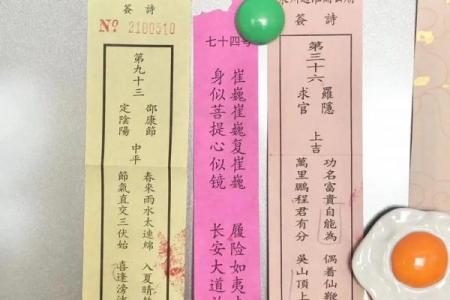 簽詩
Nº 2100310
第九十三
邵康節
定陰陽
中平
春來雨水太連綿 入夏晴
節氣直交三伏始 喜逢滂
七十四号
崔巍崔巍复崔巍 履险如夷
身似菩提心似镜 长安大道
簽詩
第三十六
羅隱
求官
上吉
功名富貴自能為 偶着仙鞭
萬里鵬程君有分 吳山頂上